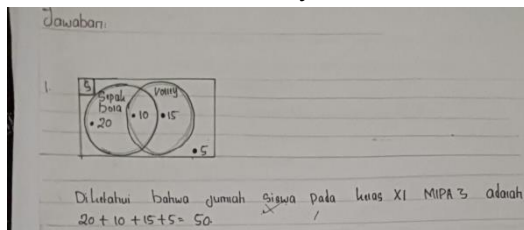 Jawaban:
1.
S
Sepak Volly
bola
• 20 • 10 • 15
• 5
Diketahui bahwa jumlah siswa pada kelas XI MIPA 3 adalah
20 + 10 + 15 + 5 = 50.